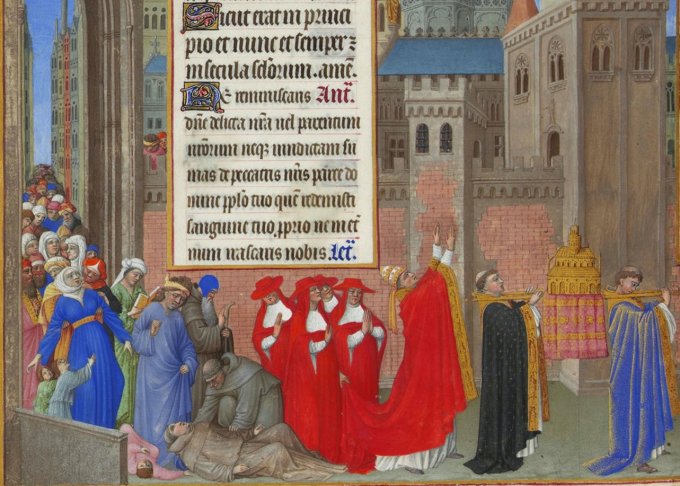 Sicut erat in princi
pio et nunc et semper ⁊
in secula sclorum. amē.
Ne reminiscaris Ant̄.
dn̄e delicta nr̄a vel parentum
nr̄orum neqꝫ vindictam su
mas de peccatis nr̄is parce do
mine pplo tuo quē redemisti
sanguine tuo pprio ne in et
num irascaris nobis. Let̄.